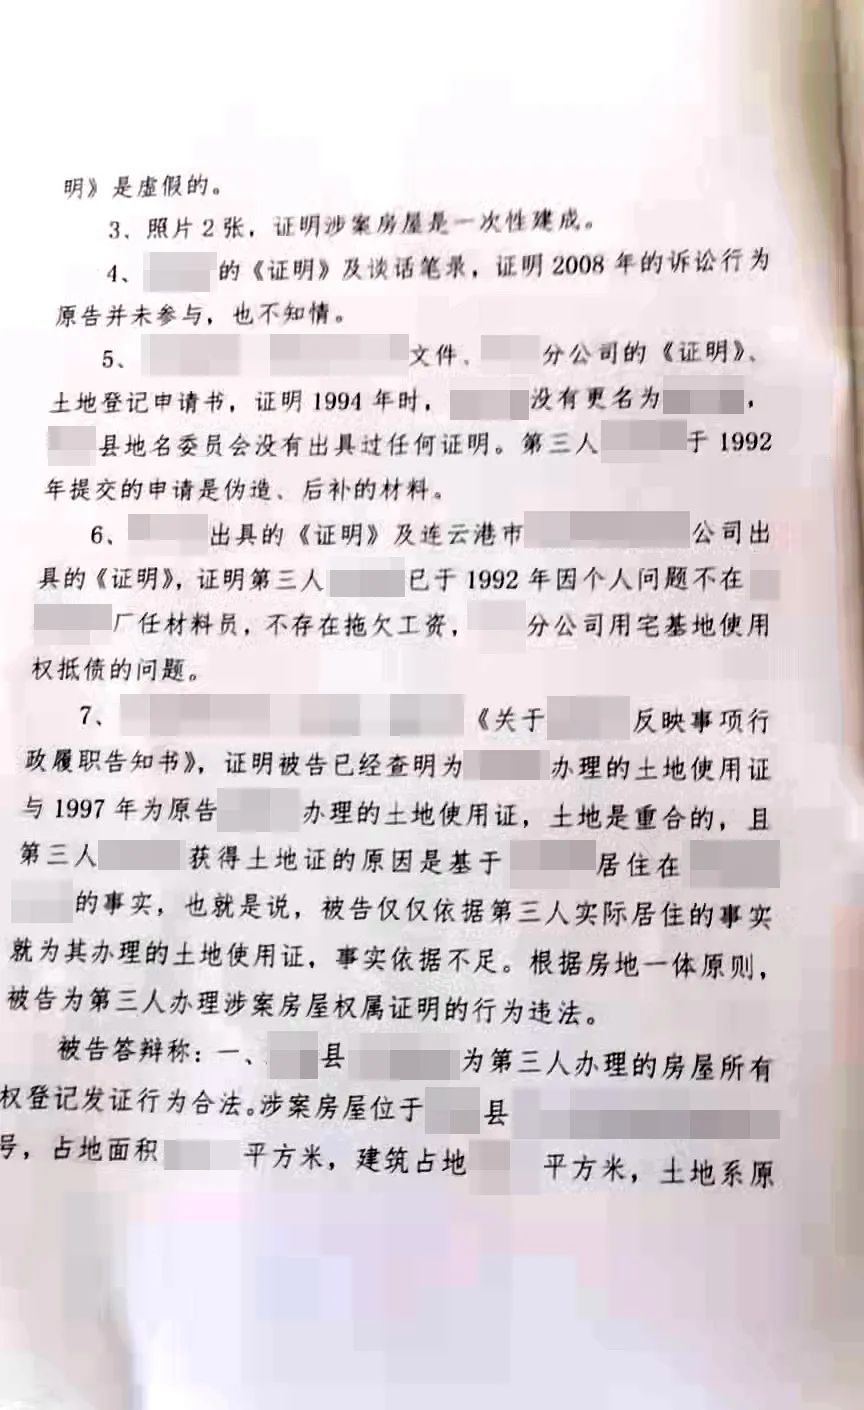 明》是虚假的。
3、照片2张，证明涉案房屋是一次性建成。
4、 的《证明》及谈话笔录，证明2008年的诉讼行为
原告并未参与，也不知情。
5、 文件、 分公司的《证明》、
土地登记申请书，证明1994年时， 没有更名为 ，
县地名委员会没有出具过任何证明。第三人 于1992
年提交的申请是伪造、后补的材料。
6、 出具的《证明》及连云港市 公司出
具的《证明》，证明第三人 已于1992年因个人问题不在
厂任材料员，不存在拖欠工资， 分公司用宅基地使用
权抵债的问题。
7、 《关于 反映事项行
政履职告知书》，证明被告已经查明为 办理的土地使用证
与1997年为原告 办理的土地使用证，土地是重合的，且
第三人 获得土地证的原因是基于 居住在
的事实，也就是说，被告仅仅依据第三人实际居住的事实
就为其办理的土地使用证，事实依据不足。根据房地一体原则，
被告为第三人办理涉案房屋权属证明的行为违法。
被告答辩称：一、 县 为第三人办理的房屋所有
权登记发证行为合法。涉案房屋位于 县
号，占地面积 平方米，建筑占地 平方米，土地系原